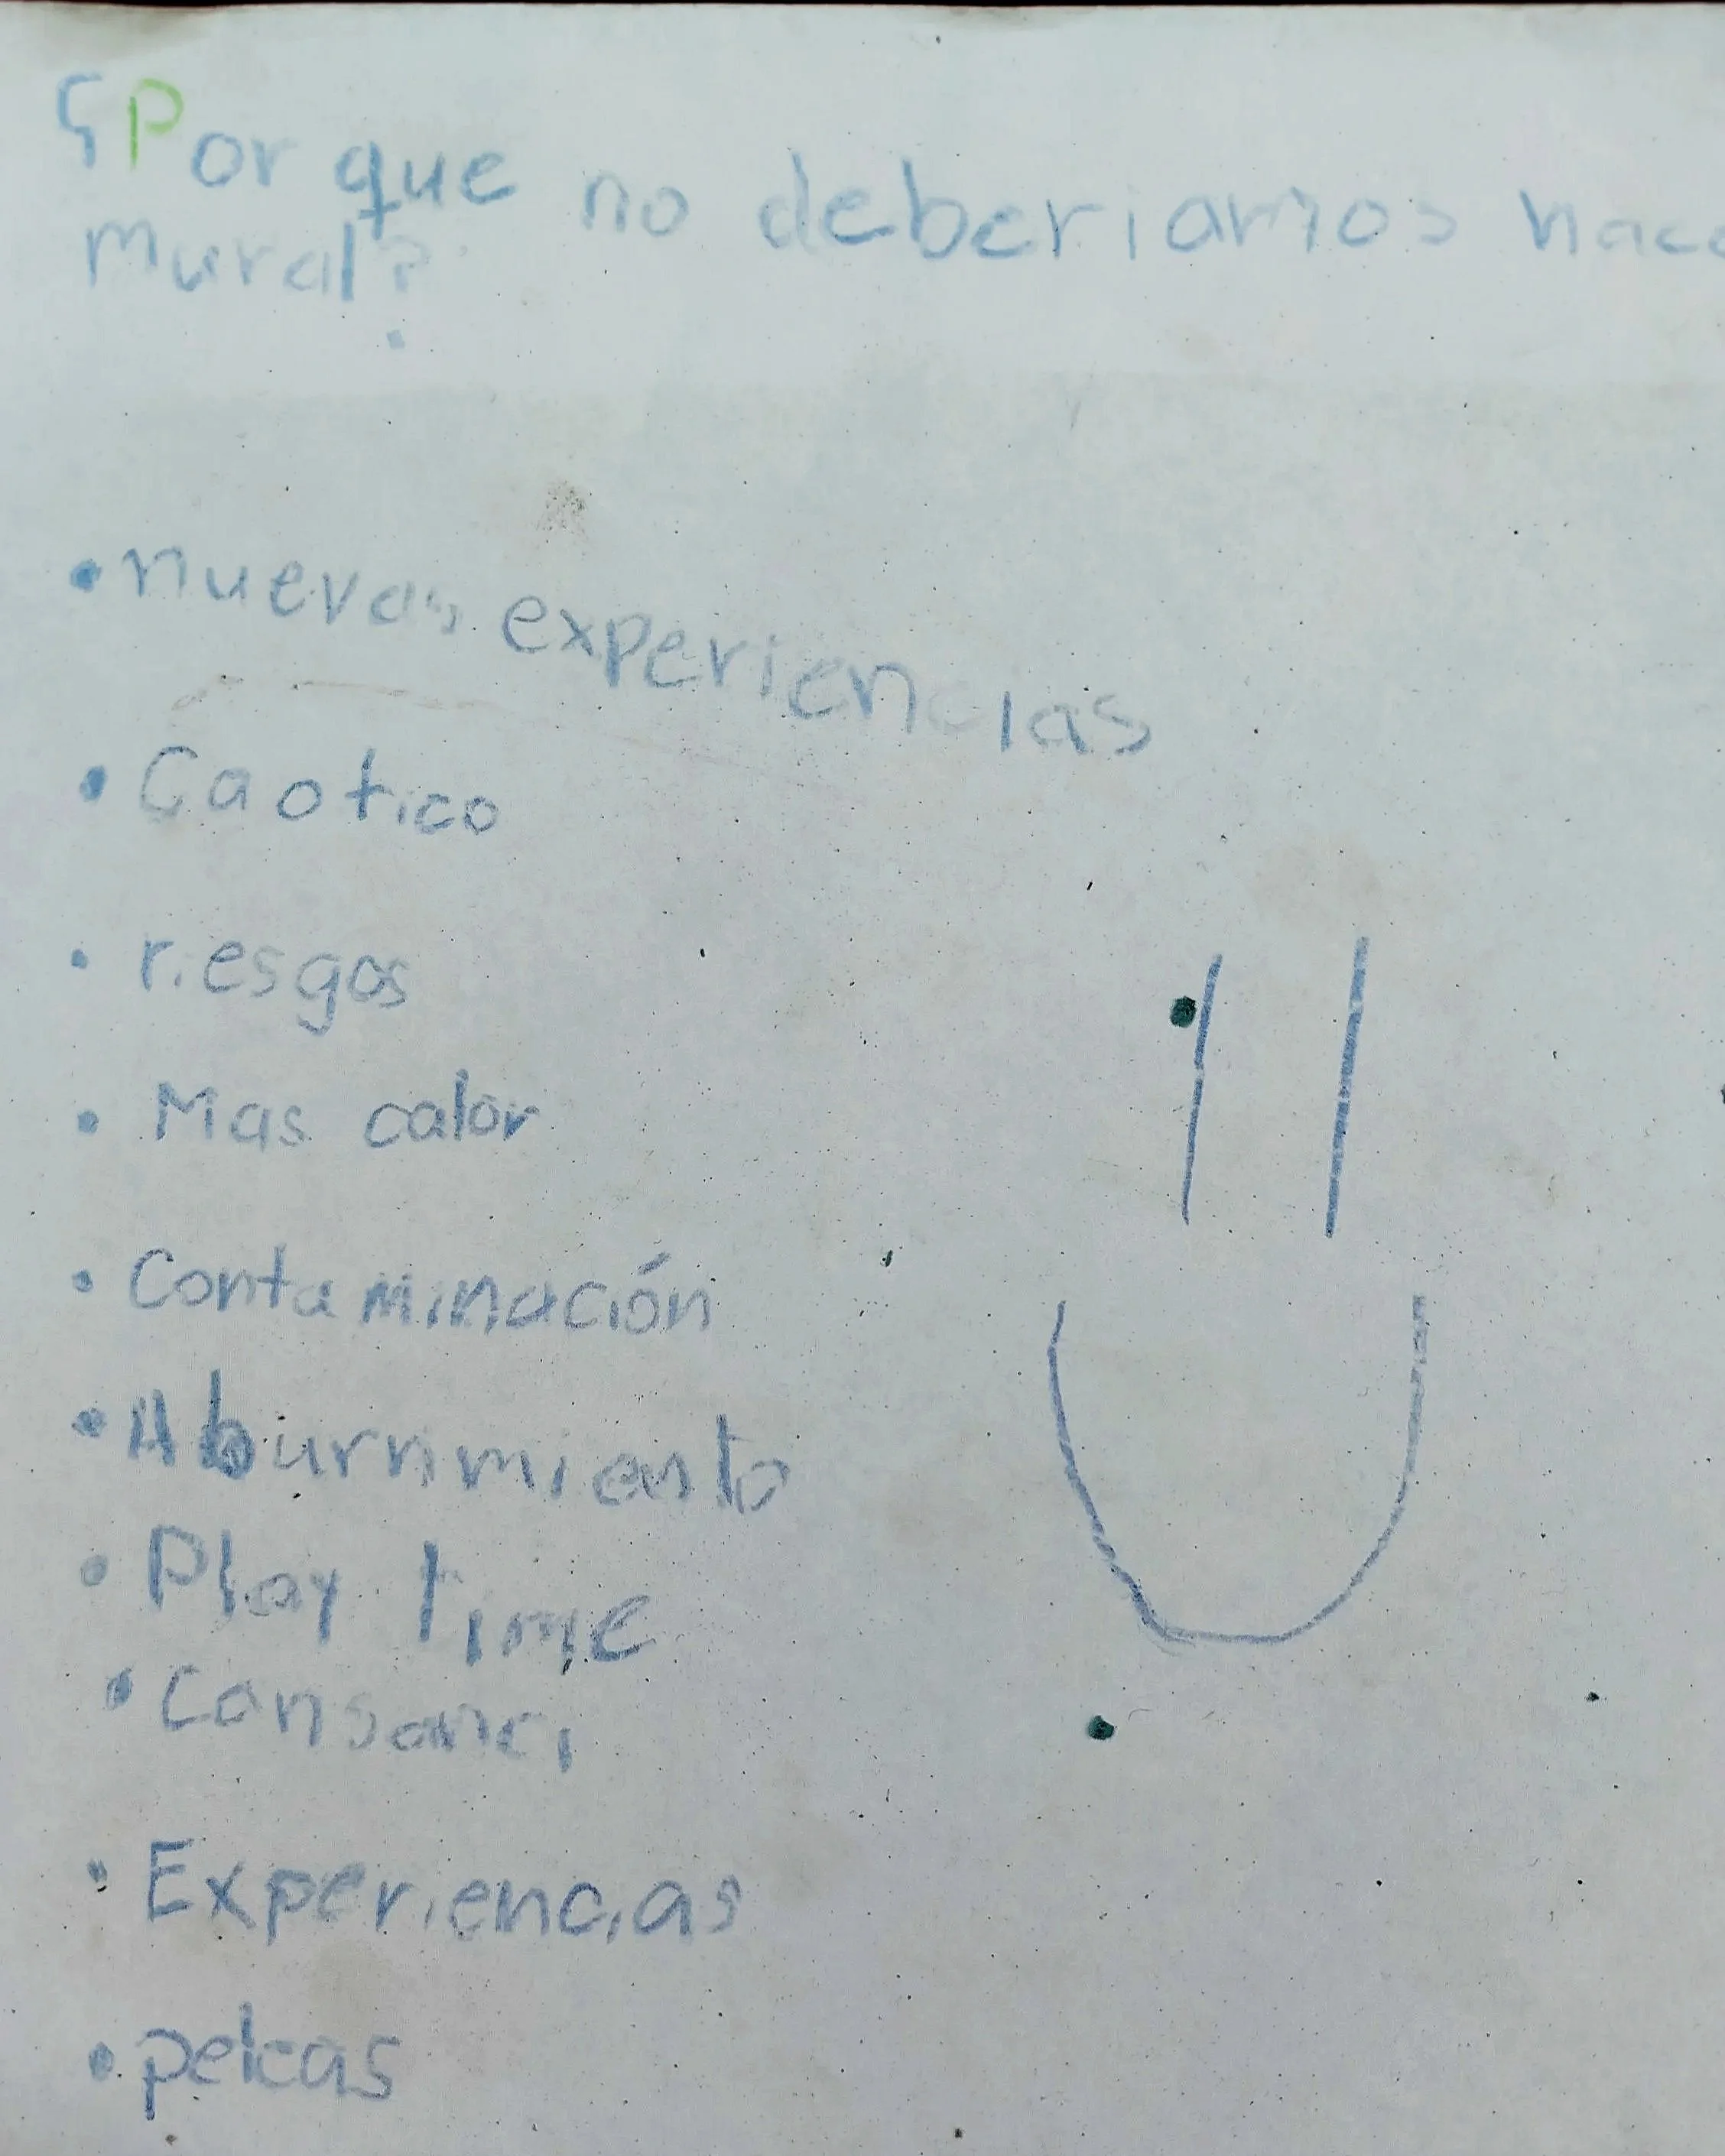 ¿Por que no deberiamos hace
mural?
• nuevas experiencias
• Caotico
• riesgos
• Mas calor
• Contaminación
• Aburrimiento
• Play time
• Experiencias
• peleas